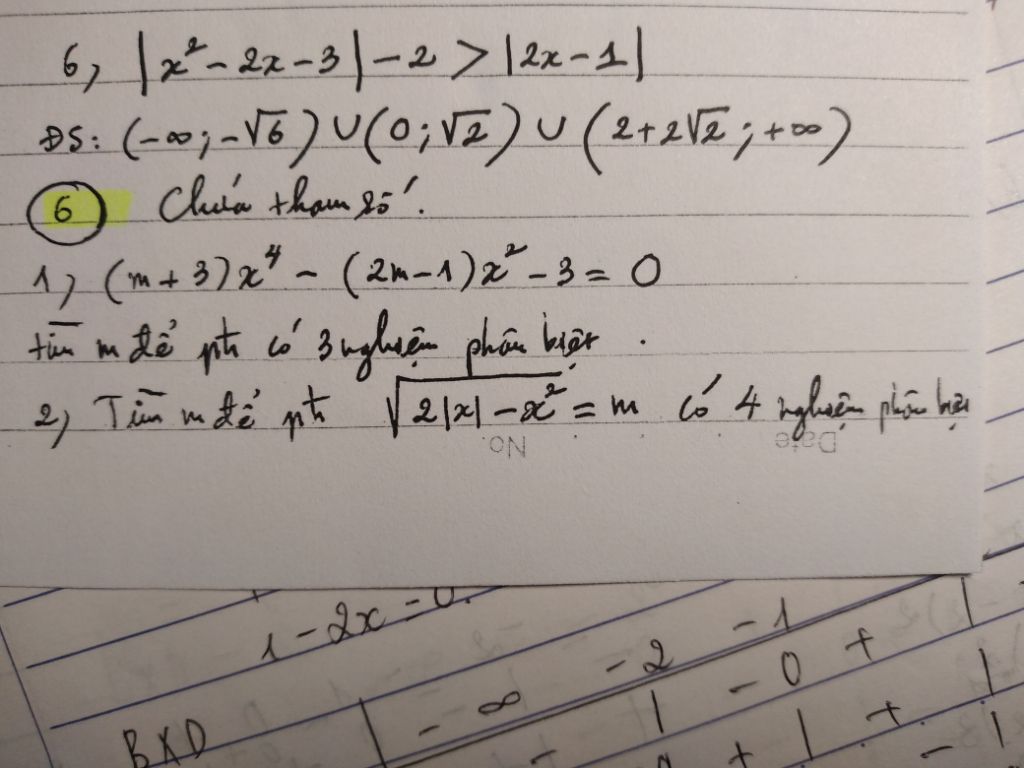 6, |x² - 2x - 3| - 2 > |2x - 1|
ĐS: (-∞; -√6) ∪ (0; √2) ∪ (2+2√2; +∞)
6 Chứa tham số.
1) (m+3)x⁴ - (2m-1)x² - 3 = 0
tìm m để pth có 3 nghiệm phân biệt.
2) Tìm m để pth √(2|x| - x²) = m có 4 nghiệm phân biệt
No. Date
1 - 2x = 0.
BXD
-∞ -2 -1
| - 0 +
+ | +
- |